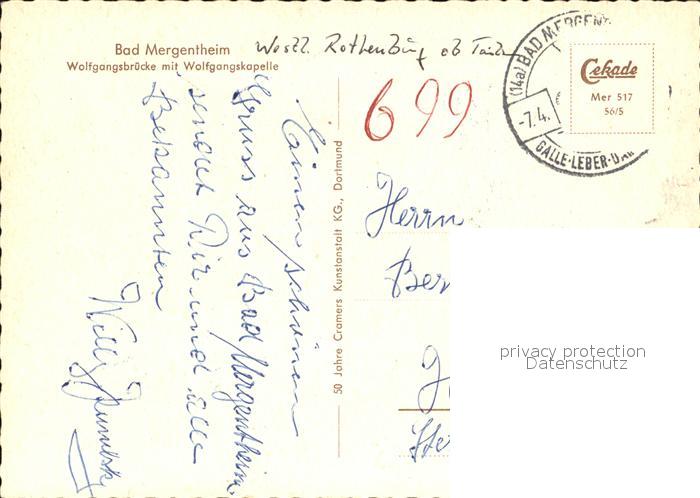 Bad Mergentheim
Wolfgangsbrücke mit Wolfgangskapelle
Westl. Rothenburg ob
699
(14a) BAD MERGENT
-7.4.
GALLE-LEBER-U.
Cekade
Mer 517
56/5
Einen schönen
Gruss aus Bad Mergentheim,
sendet Dir und alle
Bekannten
Willy
50 Jahre Cramers Kunstanstalt KG., Dortmund
Herrn
Ber
privacy protection
Datenschutz